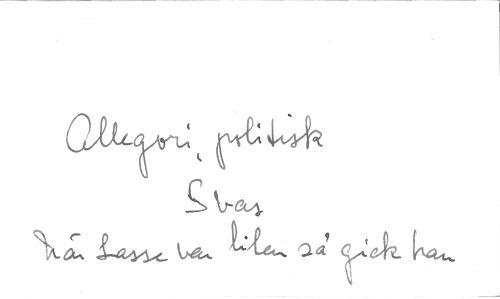 Allegori, politisk
Svas
När Lasse var liten så gick han